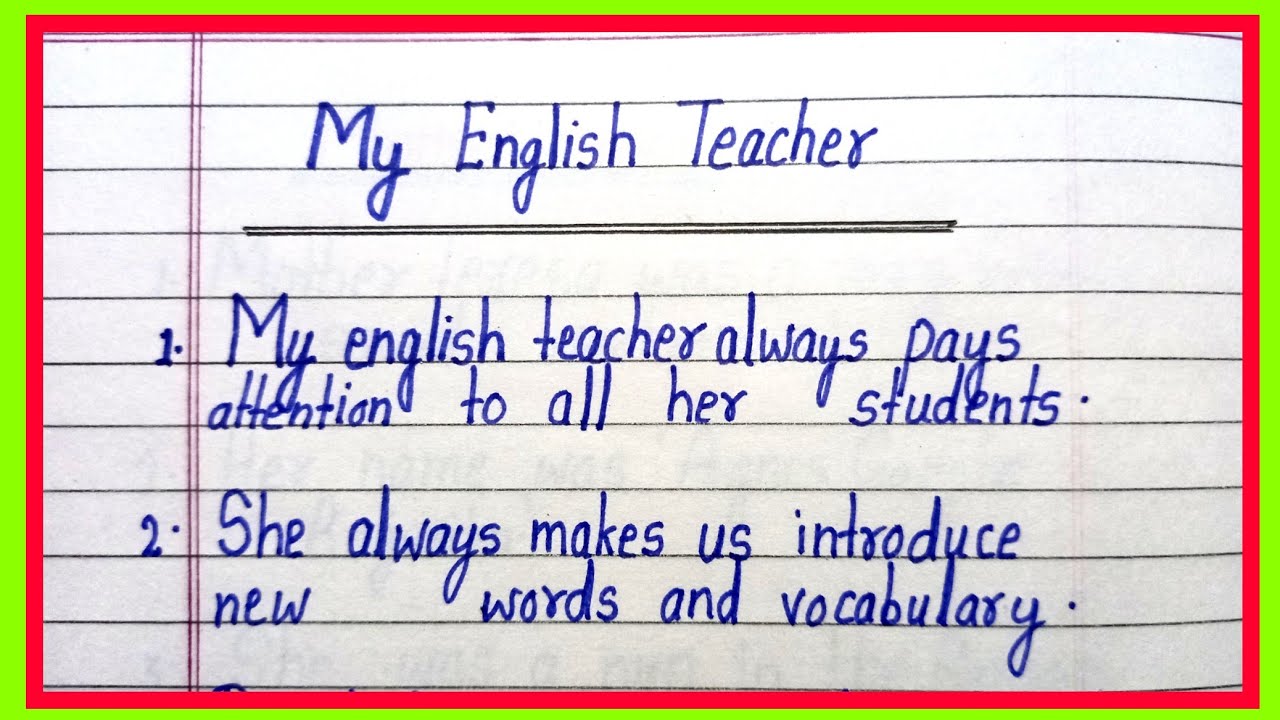 My English Teacher
1. My english teacher always pays
attention to all her students.
2. She always makes us introduce
new words and vocabulary.